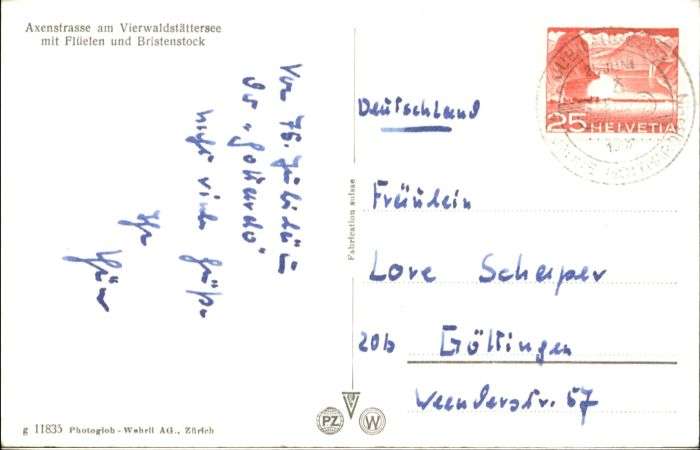 Axenstrasse am Vierwaldstättersee
mit Flüelen und Bristenstock
Vom 75. Jubiläum
der „Gotthard“
viele Grüße
Ihr
Deutschland
Fräulein
Lore Scheiper
20b Göttingen
Weenderstr. 57
25 HELVETIA
Fabrication suisse
PZ W
g 11835 Photoglob-Wehrli AG., Zürich